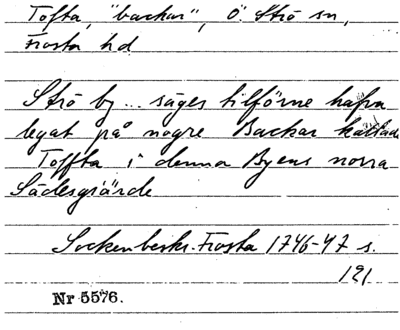 Tofta, "backar", Ö. Strö sn,
Frosta hd
Strö by... säges tilförne hafva
legat på nogre Backar kallade
Toffta i denna Byens norra
Sädesgiärde
Sockenbeskr. Frosta 1746-47 s.
121
Nr 5576.